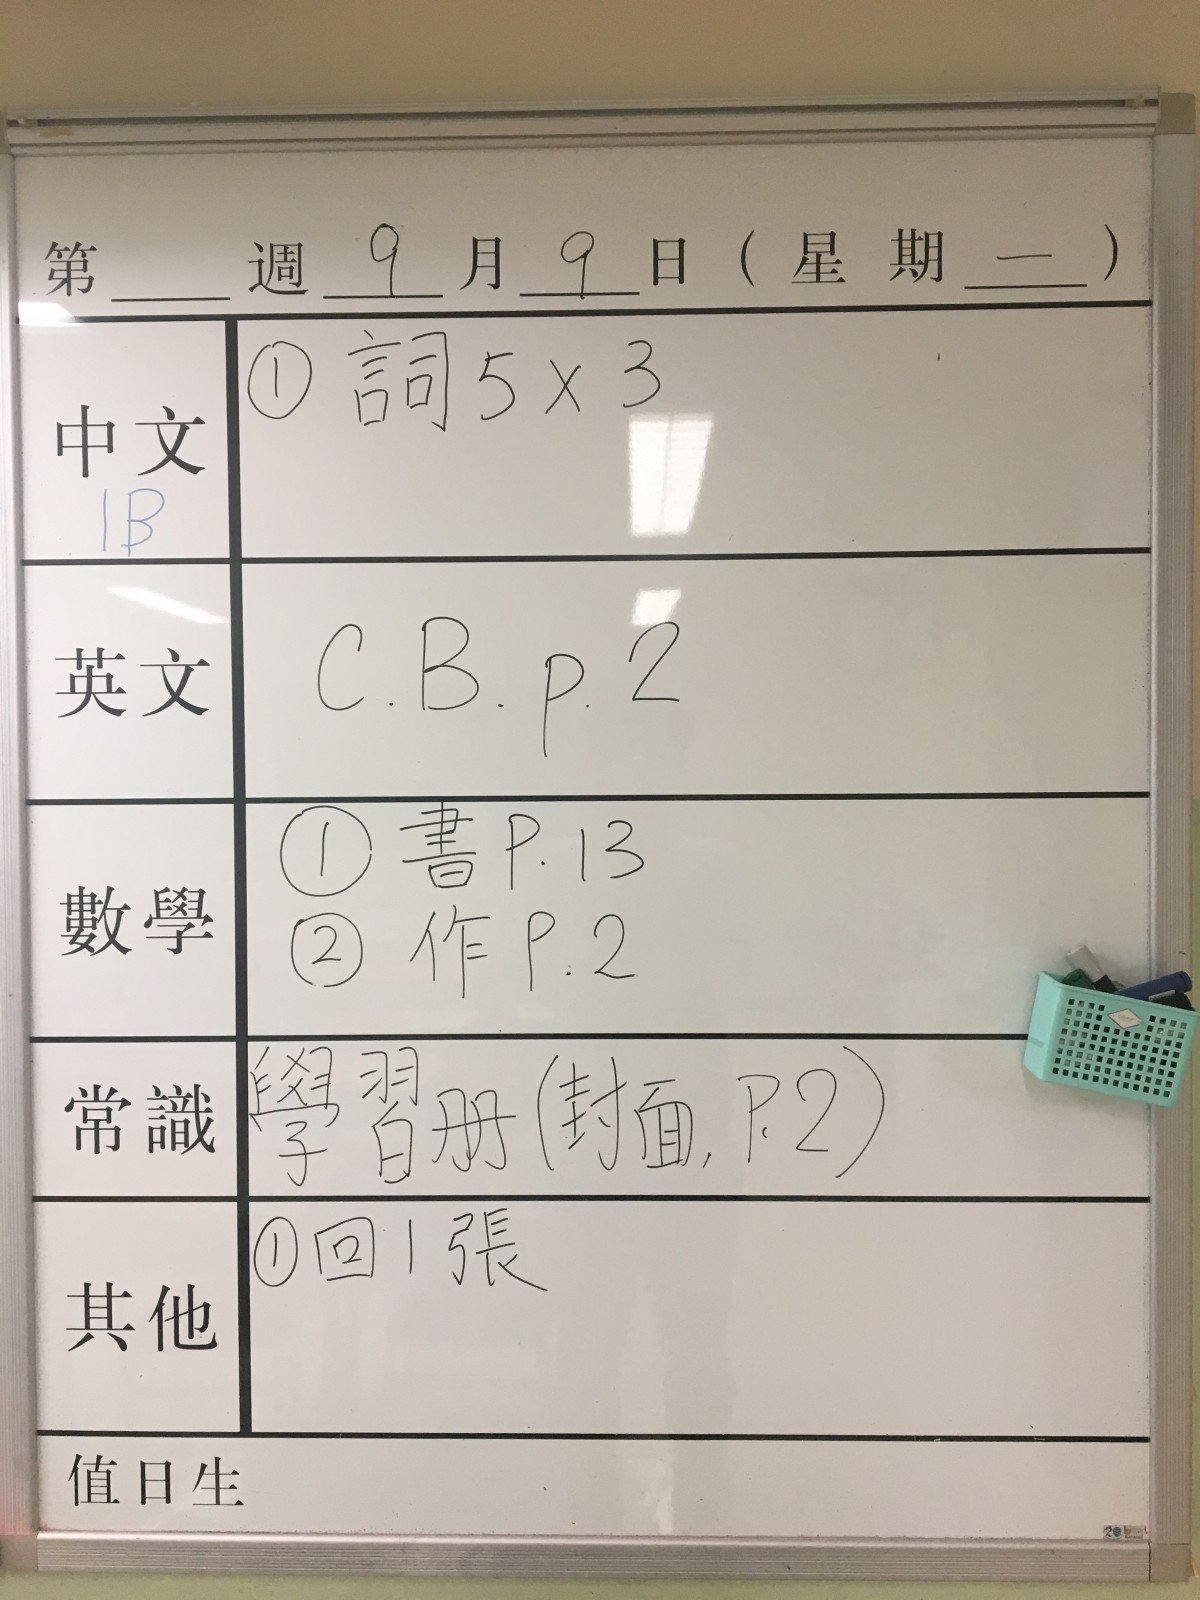 第 週 9 月 9 日 ( 星 期 一 )
中文
1B
① 詞 5 x 3
英文
C.B. p.2
數學
① 書 P.13
② 作 P.2
常識
學習册(封面, P.2)
其他
① 回 1 張
值日生